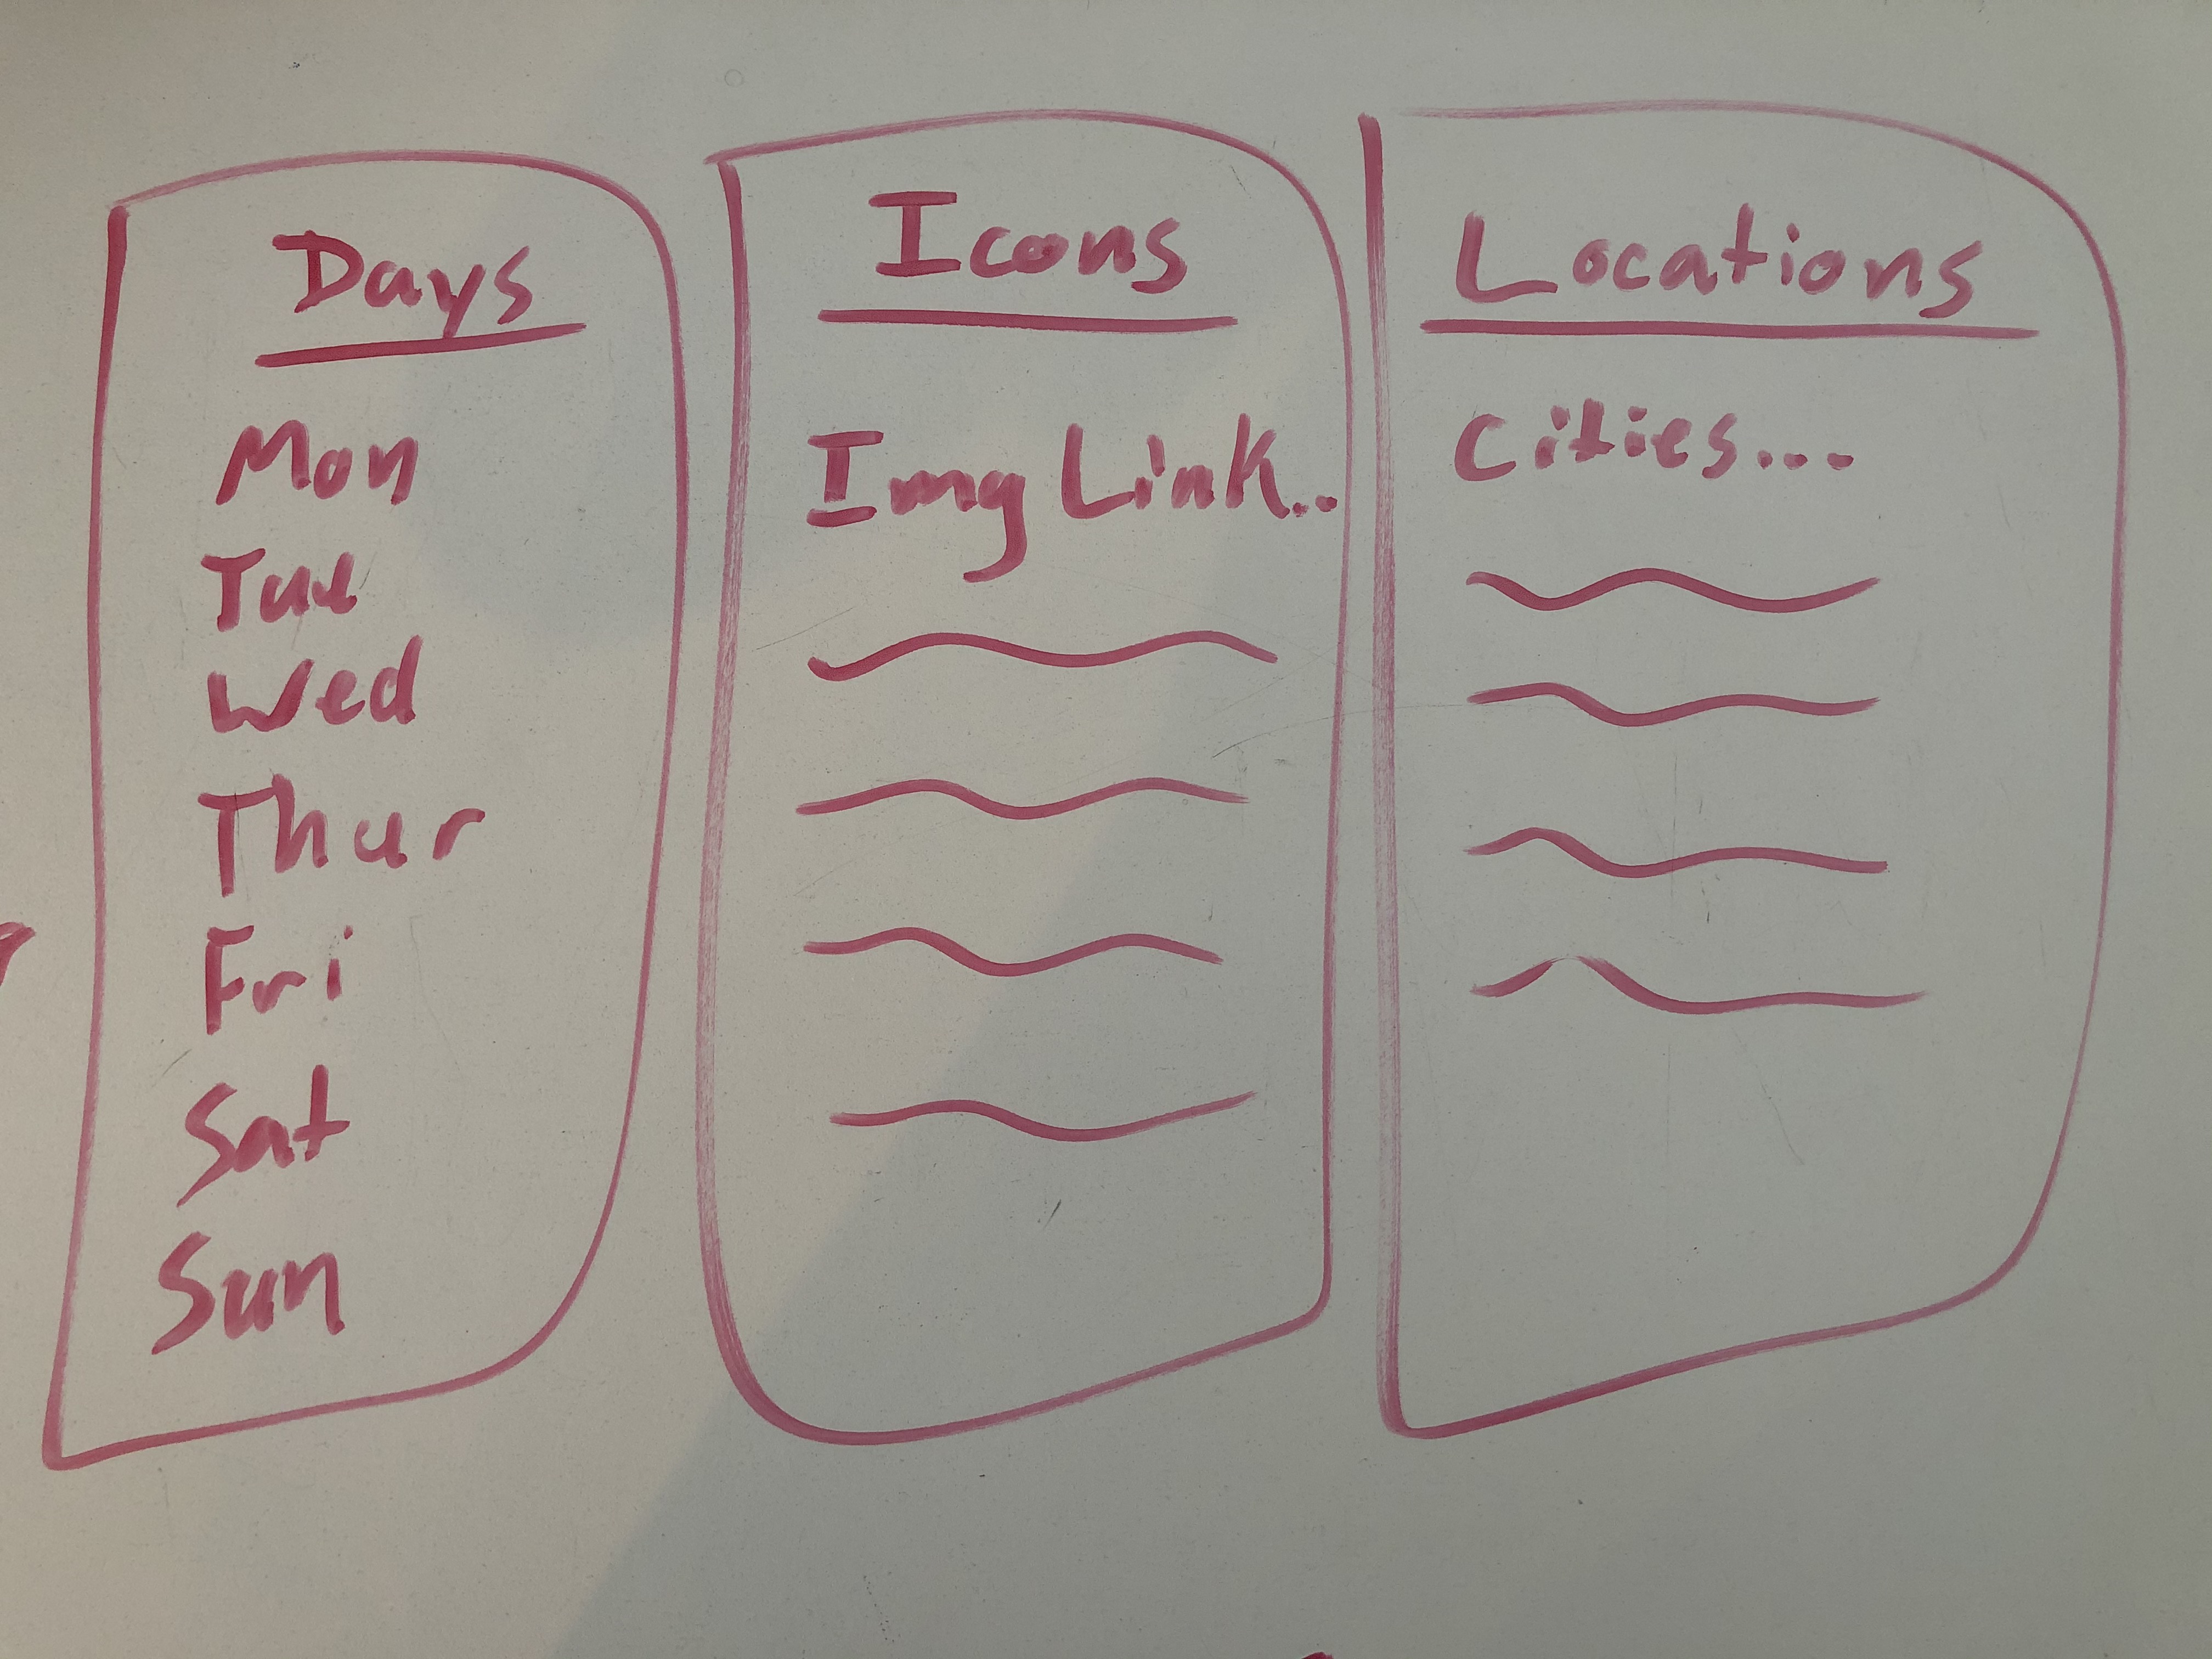 Days
Mon
Tue
Wed
Thur
Fri
Sat
Sun
Icons
Img Link...
Locations
Cities....